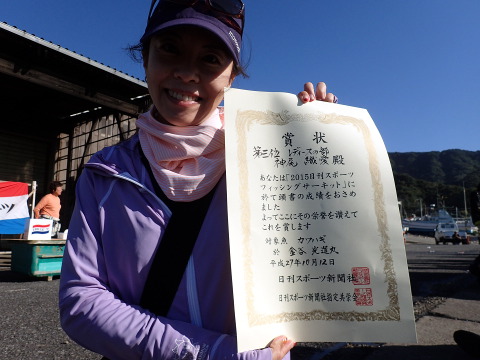 賞状
第三位 レディースの部
神尾 織愛 殿
あなたは「2015日刊スポーツ
フィッシングサーキット」に
於て頭書の成績をおさめ
ました
よってここにその栄誉を讃えて
これを賞します
対象魚 カワハギ
於 金谷 光進丸
平成27年10月12日
日刊スポーツ新聞社
日刊スポーツ新聞社指定共栄会